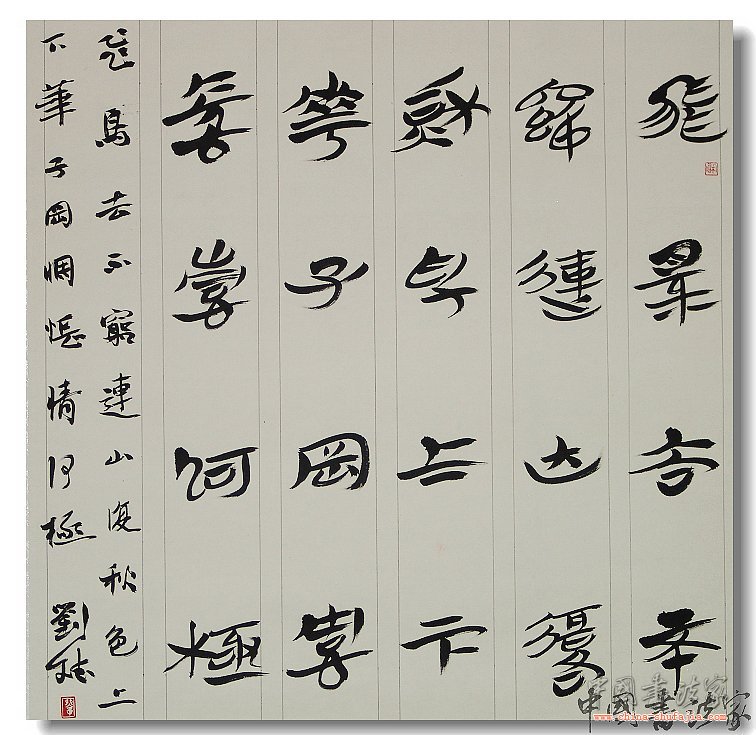 飛鳥去不
窮連山復
秋色上下
華子岡惆
悵情何極
飛鳥去不窮連山復秋色上
下華子岡惆悵情何極 劉
中國書法家
www.china-shufajia.com